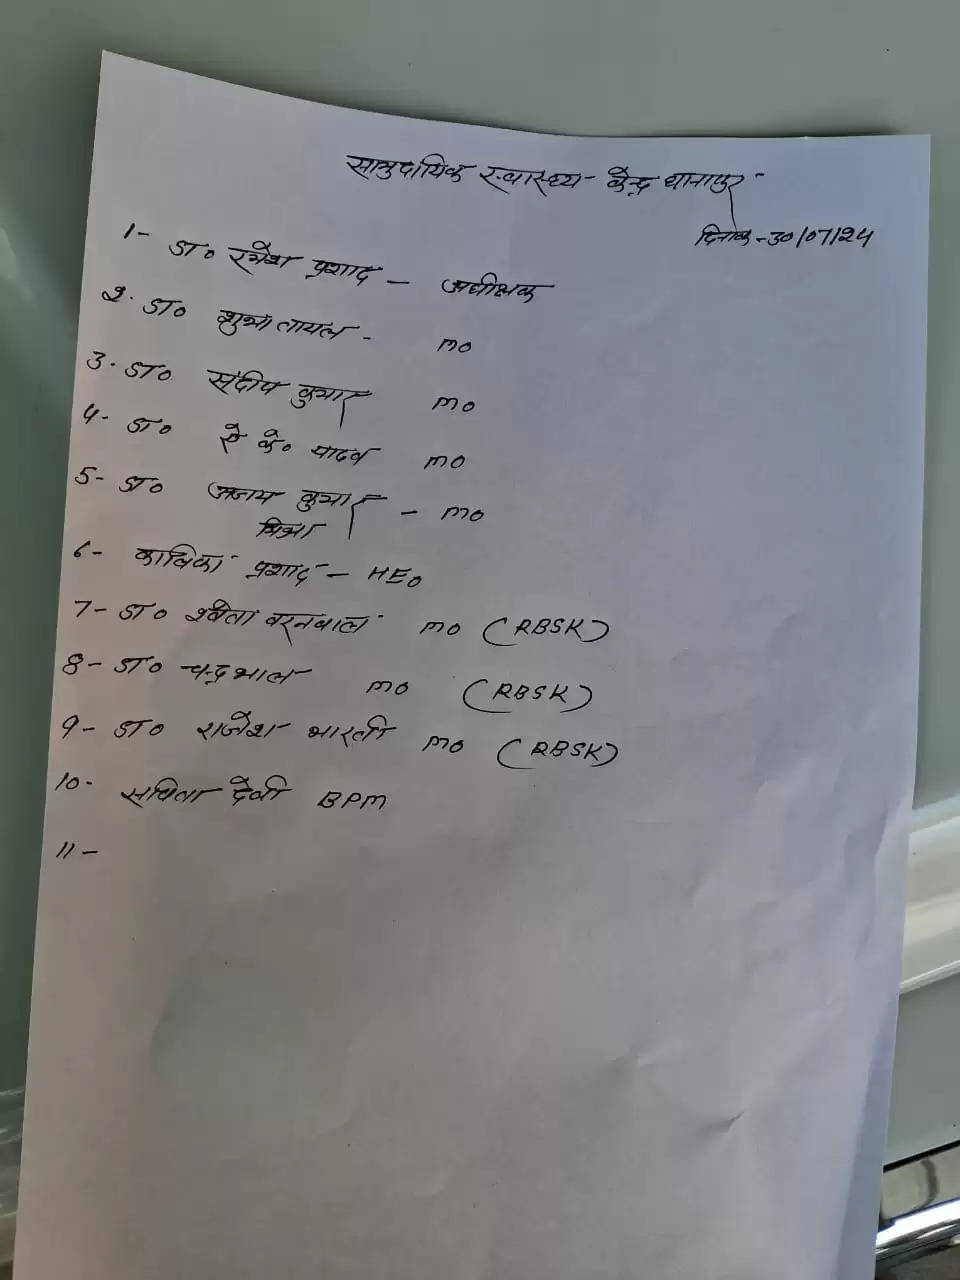 सामुदायिक स्वास्थ्य केन्द्र धानापुर
दिनांक-30/07/24
1- डा० रमेश प्रशाद - अधीक्षक
2. डा० शुभा तायल - mo
3. डा० संदीप कुमार mo
4- डा० ऐ के० यादव mo
5- डा० अजय कुमार - mo
मिश्रा
6- कालिका प्रशाद - HEo
7- डा० श्वेता वरनवाल mo (RBSK)
8- डा० चन्द्रभाल mo (RBSK)
9- डा० राजेश भारती mo (RBSK)
10- सविता देवी BPM
11-